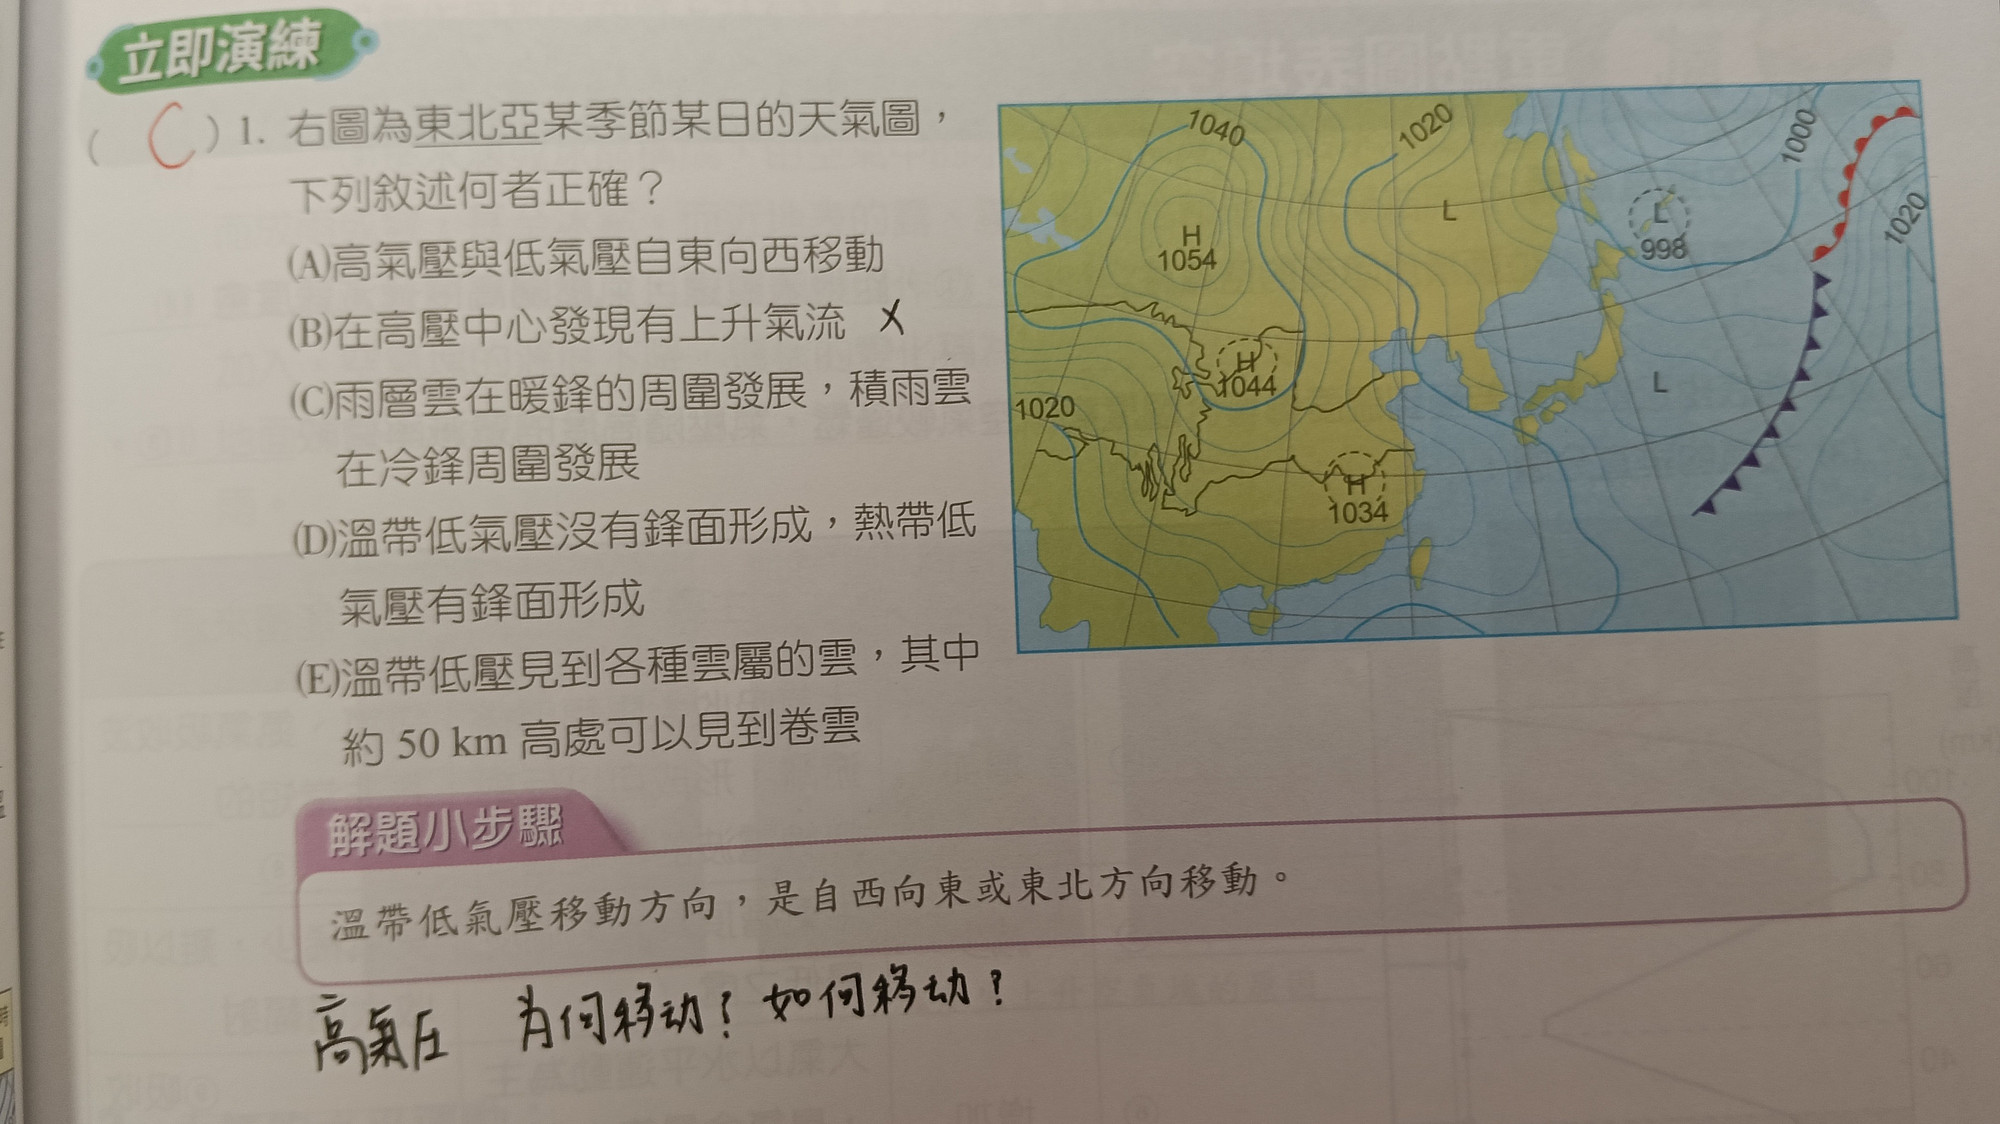 立即演練
( C ) 1. 右圖為東北亞某季節某日的天氣圖，
下列敘述何者正確？
(A)高氣壓與低氣壓自東向西移動
(B)在高壓中心發現有上升氣流 X
(C)雨層雲在暖鋒的周圍發展，積雨雲
在冷鋒周圍發展
(D)溫帶低氣壓沒有鋒面形成，熱帶低
氣壓有鋒面形成
(E)溫帶低壓見到各種雲屬的雲，其中
約 50 km 高處可以見到卷雲
1040
1020
1000
L
L
998
1020
H
1054
H
1044
L
1020
H
1034
解題小步驟
溫帶低氣壓移動方向，是自西向東或東北方向移動。
高氣压 为何移动？如何移动？